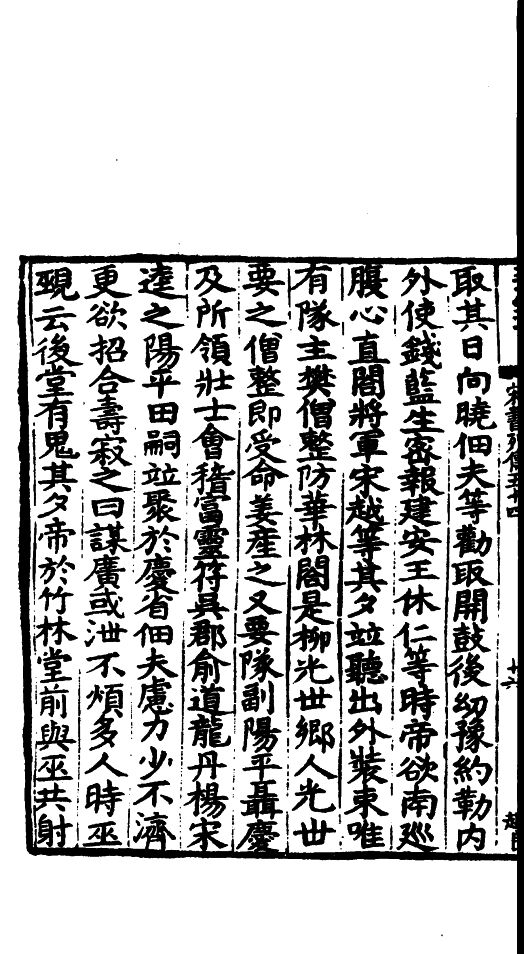 宋書列傳五十四
廿六
取其日向曉佃夫等勸取開鼓後幼豫約勒内
外使錢藍生密報建安王休仁等時帝欲南廵
腹心直閤將軍宋越等其夕竝聽出外裝束唯
有隊主樊僧整防華林閤是柳光世鄉人光世
要之僧整即受命姜産之又要隊副陽平聶慶
及所領壯士會稽富靈符吳郡俞道龍丹楊宋
逵之陽平田嗣竝聚於慶省佃夫慮力少不濟
更欲招合壽寂之曰謀廣或泄不煩多人時巫
覡云後堂有鬼其夕帝於竹林堂前與巫共射